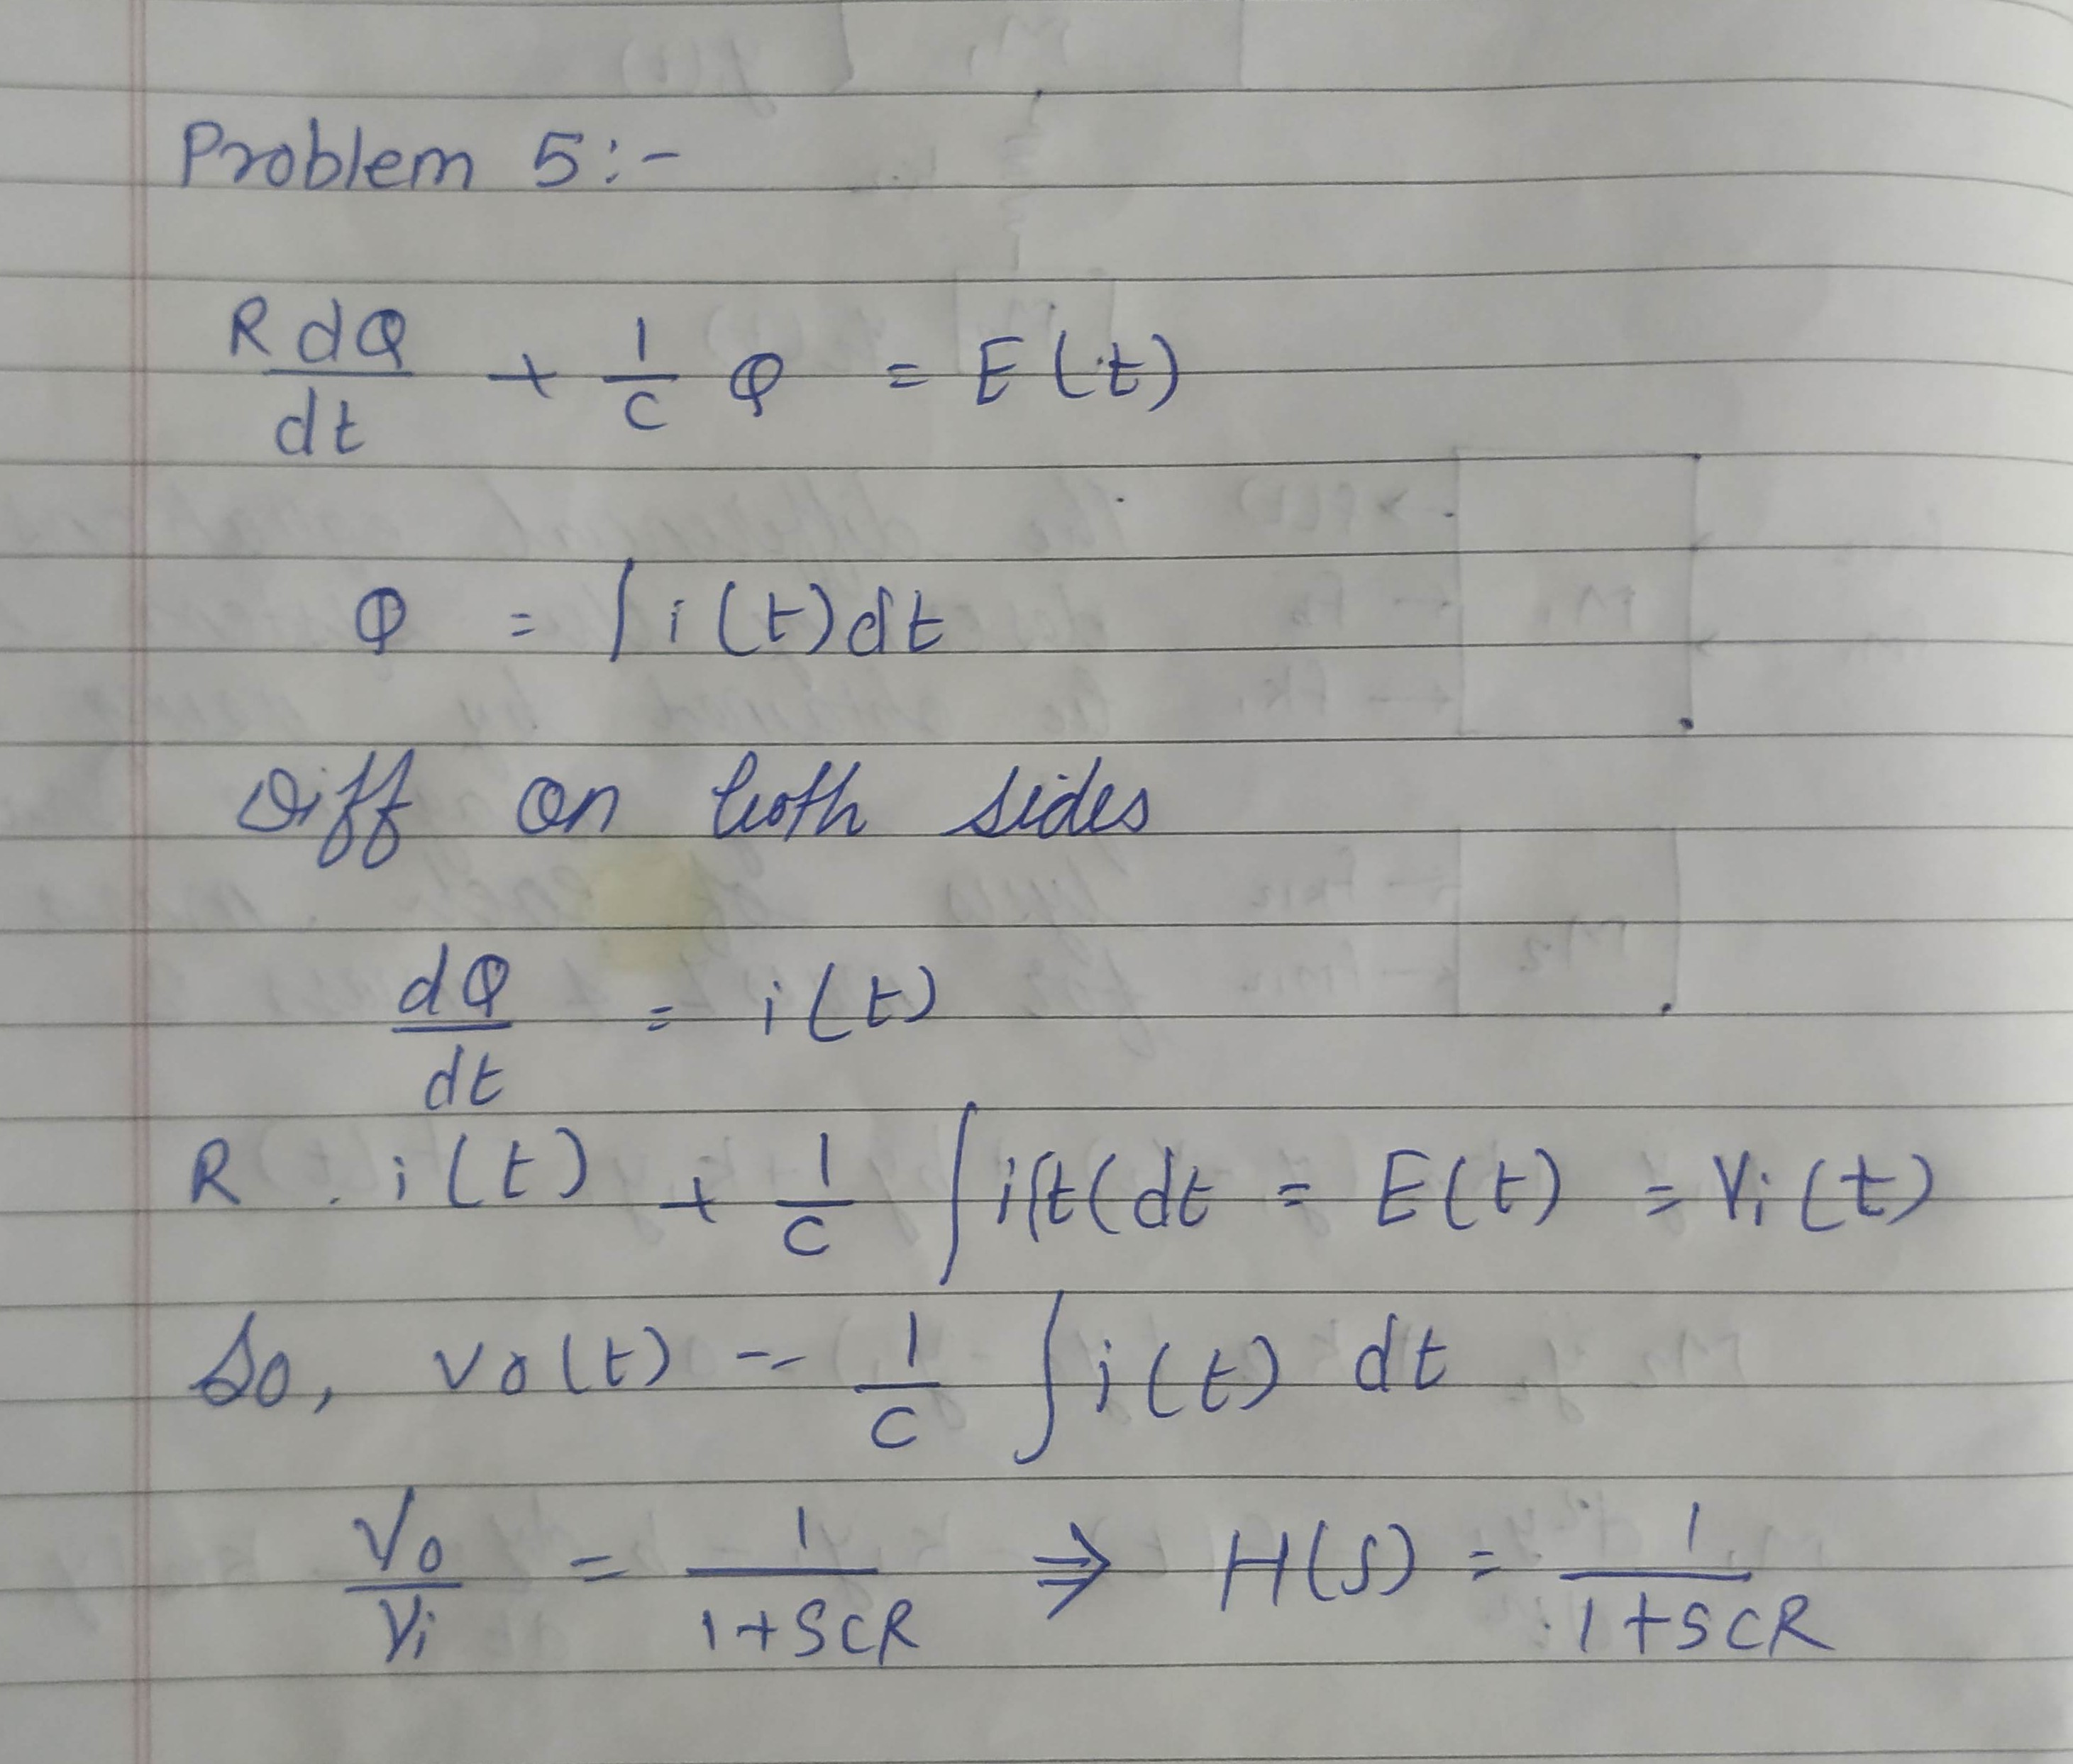 Problem 5:-
R dQ/dt + 1/C Q = E(t)
Q = ∫i(t)dt
Diff on both sides
dQ/dt = i(t)
R . i(t) + 1/C ∫i(t(dt = E(t) = Vi(t)
So, vo(t) -- 1/C ∫i(t) dt
Vo/Vi = 1/1+SCR ⇒ H(S) = 1/1+SCR